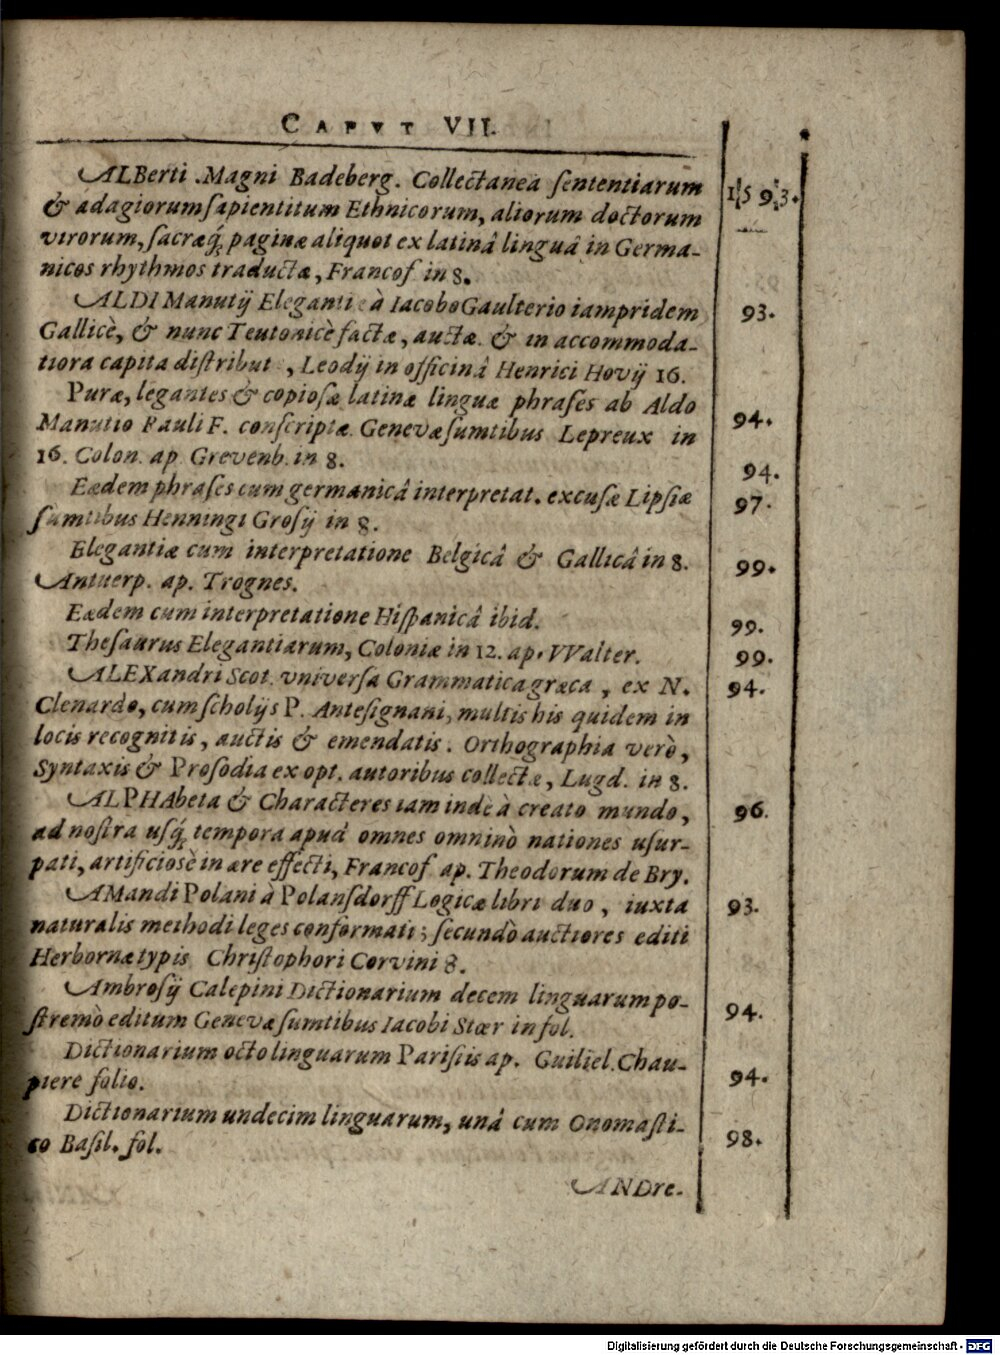 CAPVT VII.
ALBerti Magni Badeberg. Collectanea sententiarum 1593.
& adagiorum sapientitum Ethnicorum, aliorum doctorum
virorum, sacræq; paginæ aliquot ex latinâ linguâ in Germa-
nicos rhythmos traductæ, Francof in 8.
ALDI Manutij Eleganti à Iacobo Gaulterio iampridem 93.
Gallicè, & nunc Teutonicè factæ, auctæ & in accommoda-
tiora capita distribut , Leodij in officinâ Henrici Hovij 16.
Puræ, legantes & copiosæ latinæ linguæ phrases ab Aldo
Manutio Pauli F. conscriptæ Genevæ sumtibus Lepreux in 94.
16. Colon. ap. Grevenb. in 8. 94.
Eædem phrases cum germanicâ interpretat. excusæ Lipsiæ 97.
sumtibus Henningi Grosij in 8.
Elegantiæ cum interpretatione Belgicâ & Gallicâ in 8. 99.
Antuerp. ap. Trognes.
Eædem cum interpretatione Hispanicâ ibid. 99.
Thesaurus Elegantiarum, Coloniæ in 12. ap. VValter. 99.
ALEXandri Scot. vniversa Grammatica græca, ex N. 94.
Clenardo, cum scholijs P. Antesignani, multis his quidem in
locis recognitis, auctis & emendatis. Orthographia verò,
Syntaxis & Prosodia ex opt. autoribus collectæ, Lugd. in 8.
ALPHAbeta & Characteres iam inde à creato mundo, 96.
ad nostra usq; tempora apud omnes omninò nationes usur-
pati, artificiosè in ære effecti, Francof ap. Theodorum de Bry.
AMandi Polani à Polansdorff Logicæ libri duo, iuxta 93.
naturalis methodi leges conformati; secundò auctiores editi
Herbornæ typis Christophori Corvini 8.
Ambrosij Calepini Dictionarium decem linguarum po- 94.
stremò editum Genevæ sumtibus Iacobi Stœr in fol.
Dictionarium octo linguarum Parisiis ap. Guiliel. Chau- 94.
piere folio.
Dictionarium undecim linguarum, unâ cum Onomasti- 98.
co Basil. fol.
ANDre.
Digitalisierung gefördert durch die Deutsche Forschungsgemeinschaft - DFG